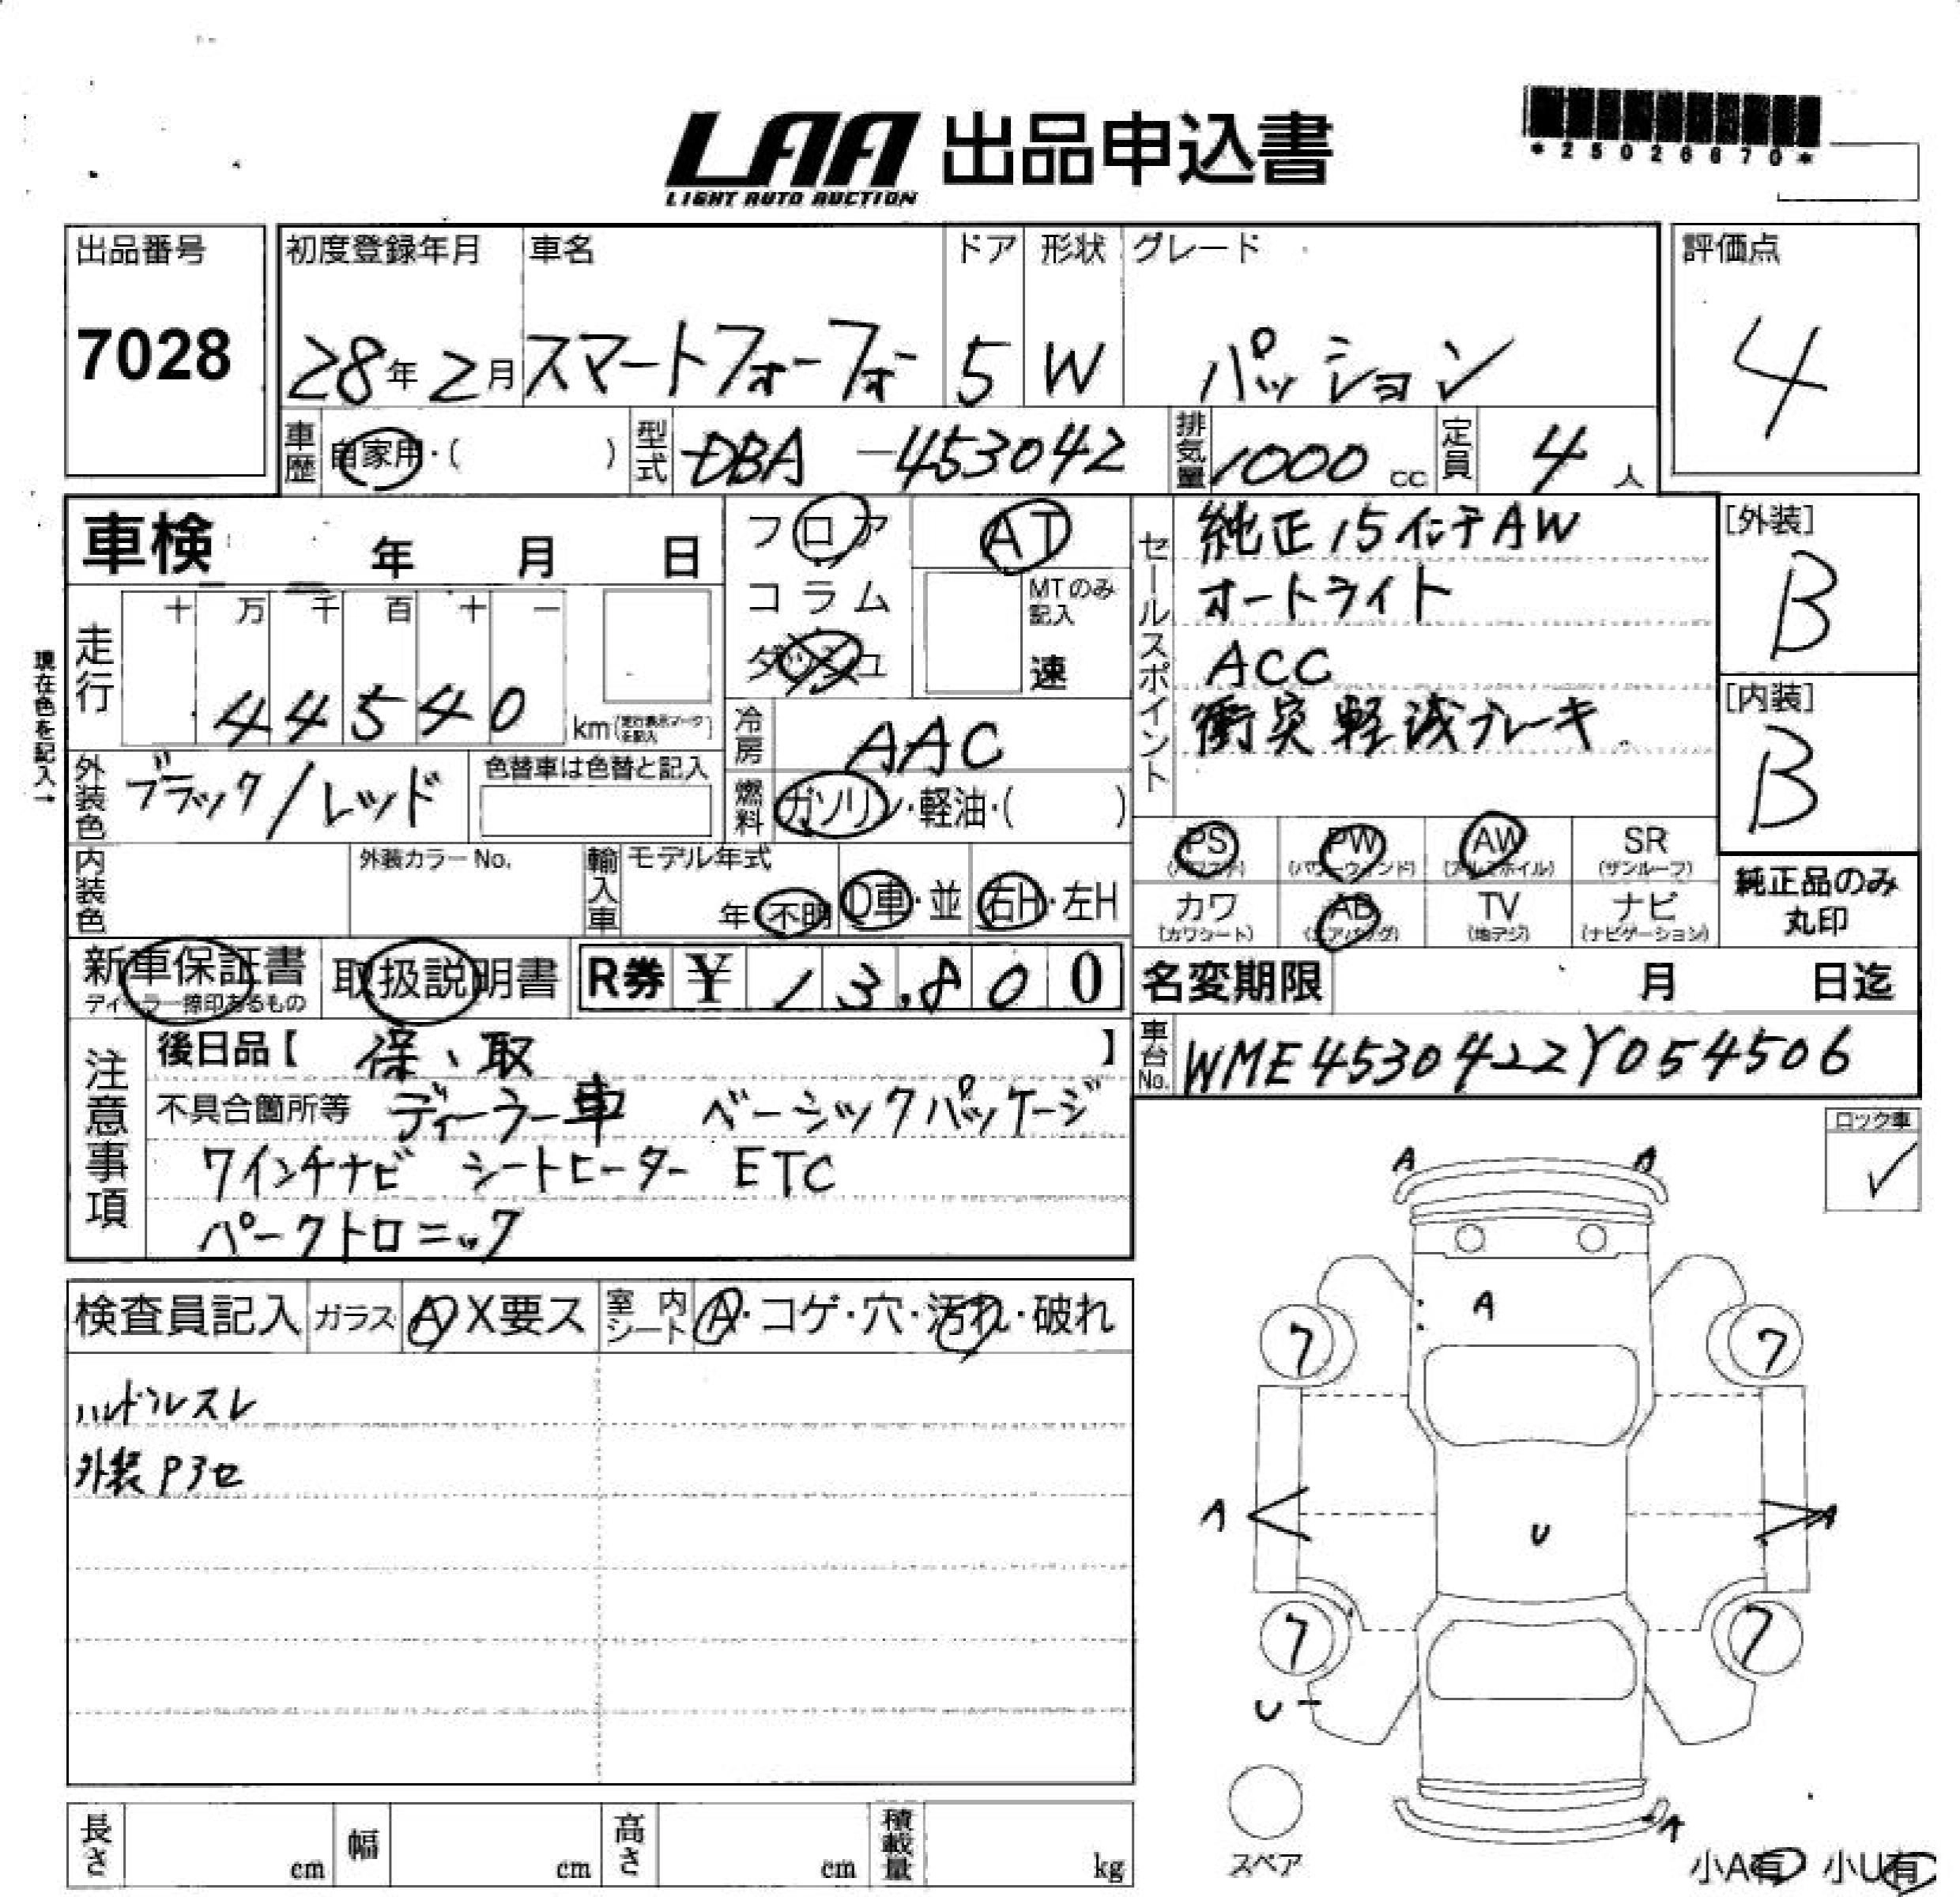 LAA 出品申込書
LIGHT AUTO AUCTION
*25026670*
出品番号 初度登録年月 車名 ドア 形状 グレード 評価点
7028 28年 2月 スマートフォーフォー 5 W パッション 4
車歴 自家用・( ) 型式 DBA-453042 排気量 1000 cc 定員 4人
車検 年 月 日
フロア AT
コラム MTのみ記入
ダッシュ 速
走行 十 万 千 百 十 一
44540 km(走行表示マークを記入)
現在色を記入→
外装色 ブラック/レッド 色替車は色替と記入
冷房 AAC
燃料 ガソリン・軽油・( )
内装色 外装カラーNo. 輸入車 モデル年式 年 不明 D車・並 右H・左H
セールスポイント
純正15インチAW
オートライト
ACC
衝突軽減ブレーキ
[外装]
B
[内装]
B
PS PW AW SR
(パワステ) (パワーウィンド) (アルミホイル) (サンルーフ)
カワ AB TV ナビ
(カワシート) (エアバッグ) (地デジ) (ナビゲーション)
純正品のみ
丸印
新車保証書 取扱説明書 R券 ¥ 13,800
ディーラー捺印あるもの
名変期限 月 日迄
車台No. WME4530422Y054506
注意事項
後日品【 保、取 】
不具合箇所等 ディーラー車 ベーシックパッケージ
7インチナビ シートヒーター ETC
パークトロニック
ロック車
✓
検査員記入 ガラス A X要ス 室内シート A・コゲ・穴・汚れ・破れ
ハンドルスレ
外装Pヌセ
A A
A
7 7
A U A
7 7
U
A
スペア
小A有 小U有
長さ cm 幅 cm 高さ cm 積載量 kg